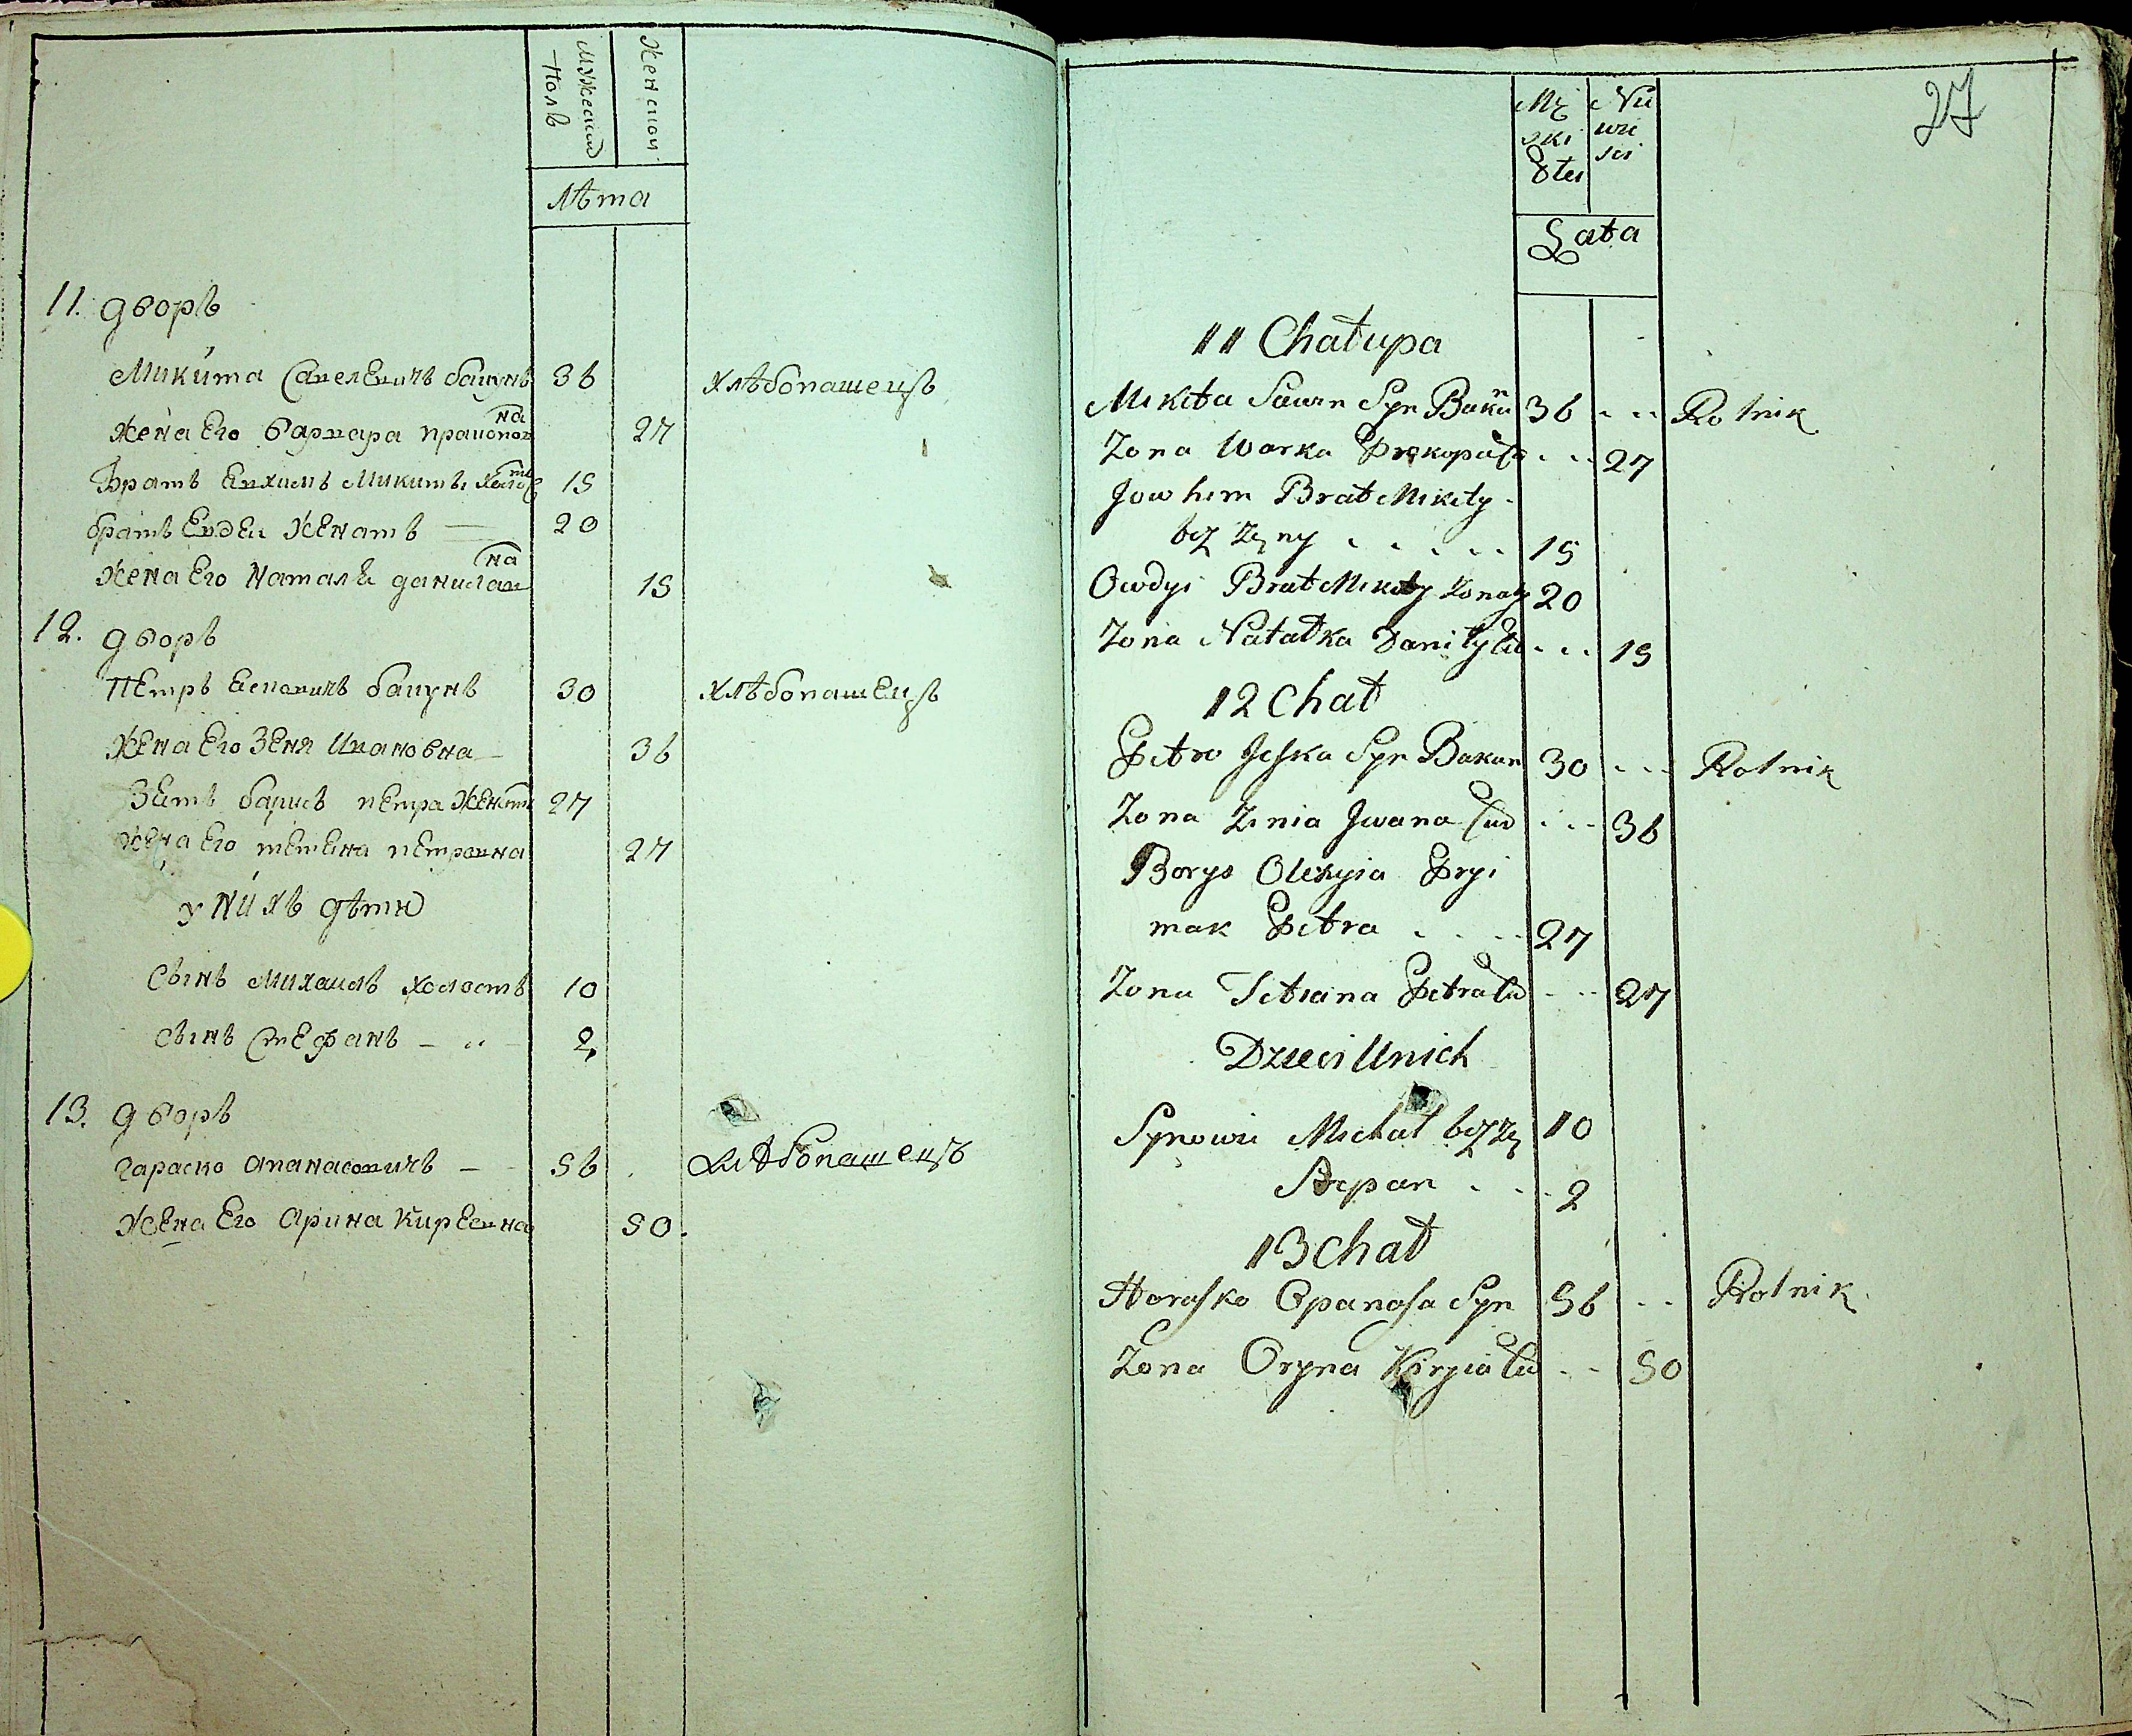 Мужеска
Полъ
Женской
Лѣта
11. дворъ
Микита Савелевичъ бакунъ 36 Хлѣбопашецъ
жена Его варвара пракопов
на 27
Братъ Евхимъ Микиты холос
тъ 15
братъ Евдеи женатъ — 20
жена Его Наталя данилов
на 19
12. дворъ
Петръ Есковичъ бакунъ 30 Хлѣбопашецъ
жена Его Зеня Ивановна 36
Зеть барисъ петра женатъ 27
жена Его тетена петровна 27
у нихъ дѣти
Сынъ Михаилъ холостъ 10
сынъ Стефанъ — „ 2
13. дворъ
гараско апанасовичъ — 56 Хлѣбопашецъ
жена Его арина киреевна 50.
27
Mę
ski
Nie
wie
sci
Łata
11 Chałupa
Mikita Sawn Syn Baku
n 36 Rolnik
Zona Warka Prokopa 27
Jowhim Brat Mikity
bez Zęny 15
Owdyi Brat Mikity Zonaty 20
Zona Natałka Daniły 19
12 Chał
Petro Jeska Syn Bakun 30 Rolnik
Zona Zinia Jwana 36
Borys Olexyia Pryi
mak Petra 27
Zona Tetiana Petra 27
Dzieci Unich
Synowie Michał bez Zę 10
Stepan 2
13 Chał
Harasko Opanasa Syn 56 Rolnik
Zona Oryna Kiryia 50